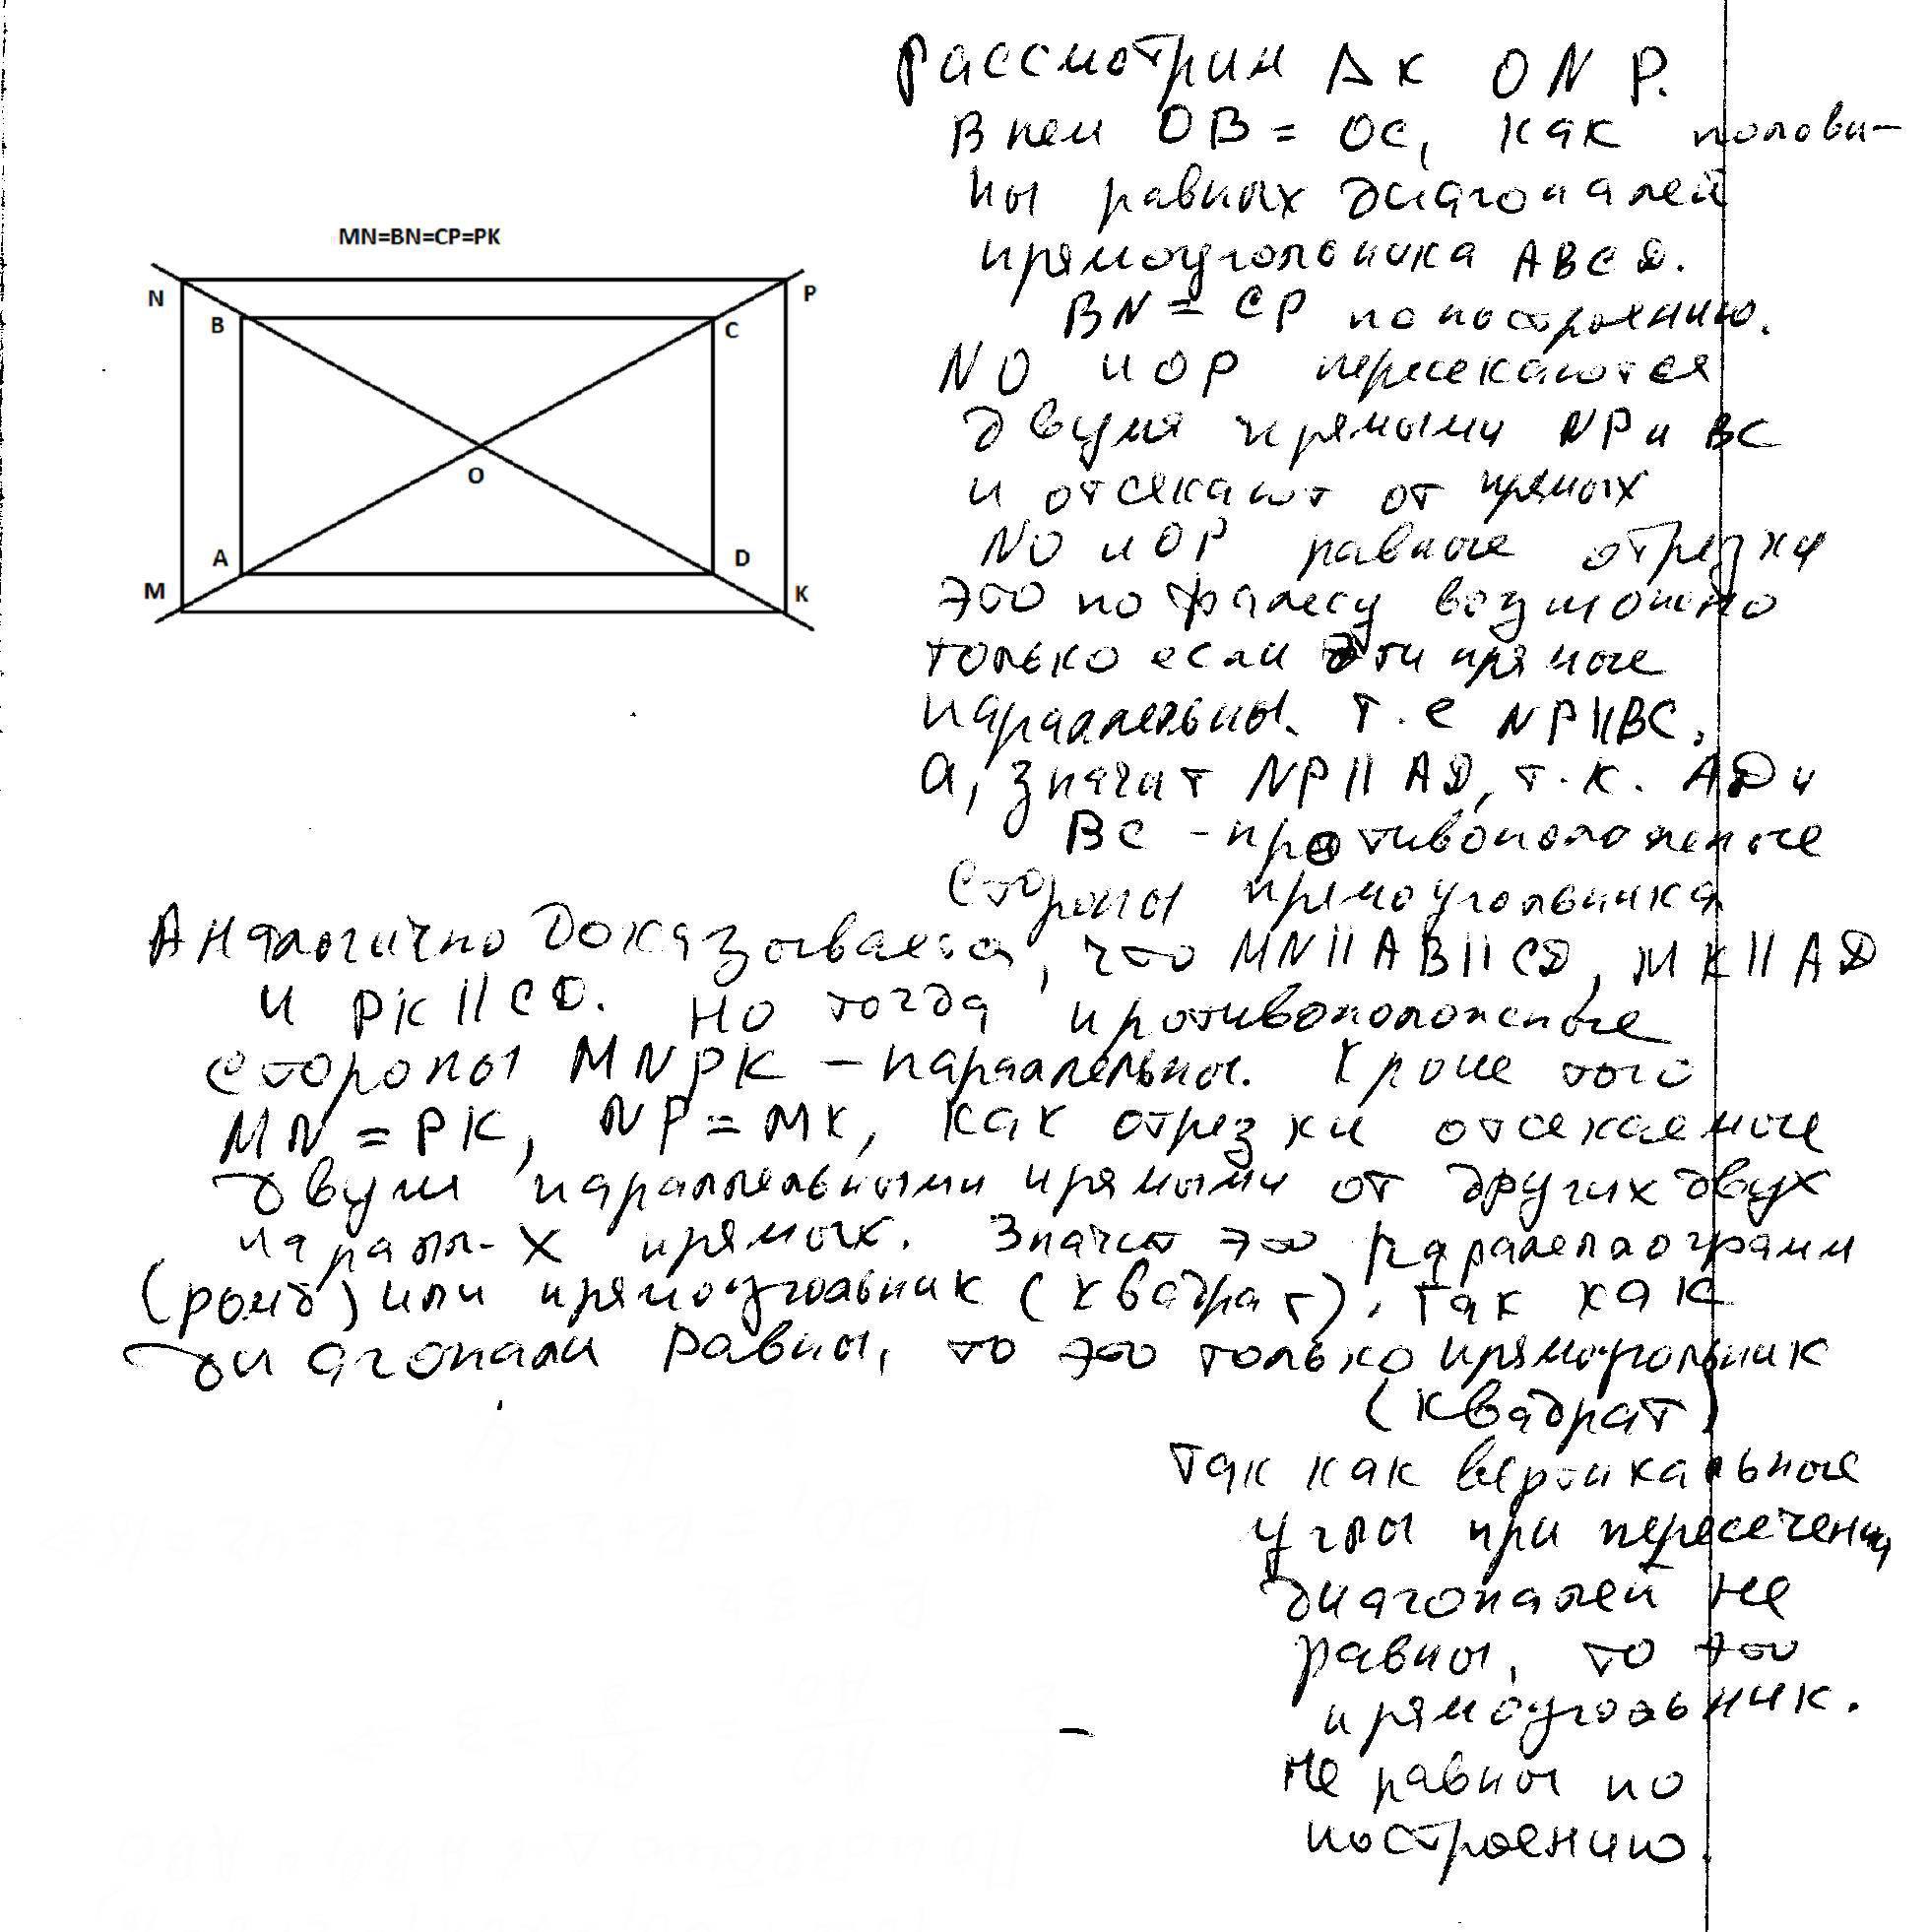 MN=BN=CP=PK
N
P
B
C
O
A
D
M
K
Рассмотрим Δк ONP.
В нем OB = OC, как полови-
ны равных диагоналей
прямоугольника ABCD.
BN = CP по построению.
NO и OP пересекаются
двумя прямыми NP и BC
и отсекают от прямых
NO и OP равные отрезки
это по Фалесу возможно
только если эти прямые
параллельны. т.е NP||BC,
а, значит NP || AD, т.к. AD и
BC - противоположные
стороны прямоугольника
Аналогично доказывается, что MN||AB||CD, MK||AD
и PK||CD. Но тогда противоположные
стороны MNPK - параллельны. Кроме того
MN = PK, NP = MK, как отрезки отсекаемые
двумя параллельными прямыми от других двух
паралл-х прямых. Значит это паралелограмм
(ромб) или прямоугольник (квадрат). Так как
диагонали равны, то это только прямоугольник
(квадрат)
Так как вертикальные
углы при пересечении
диагоналей не
равны, то это
прямоугольник.
Не равны по
построению.